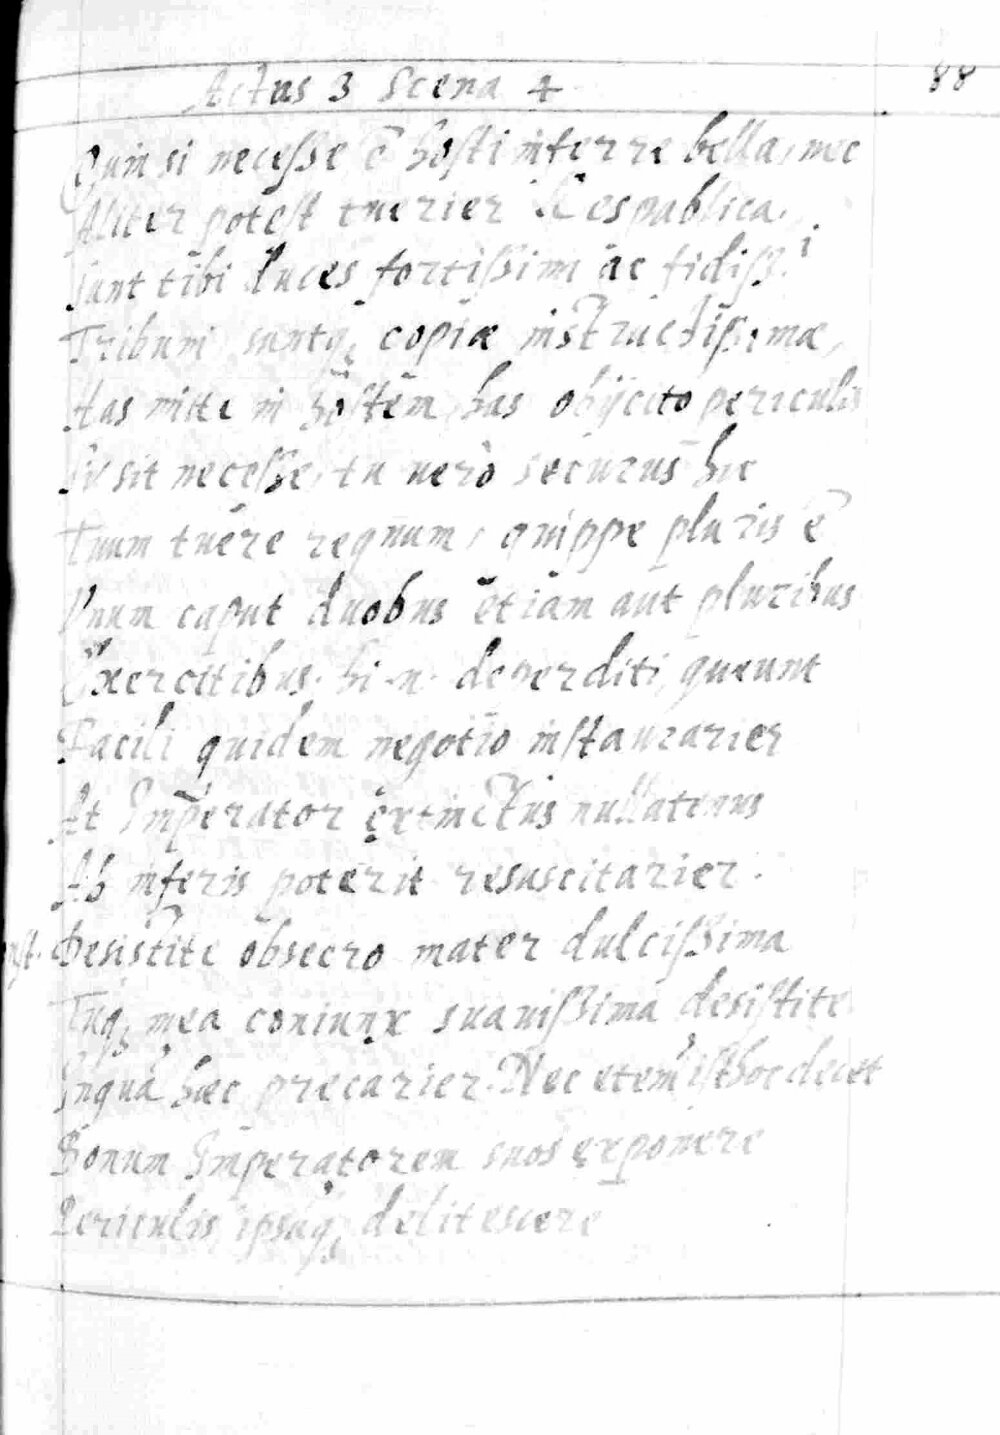 Actus 3 Scena 4
88
Quin si necesse ē hosti inferre bella, nec
Aliter potest tuerier Respublica,
Sunt tibi duces fortissimi ac fidiss.i
Tribuni suntq; copiæ instructissimæ,
Has mitte in hostem, has obijcito periculis
Si sit necesse, tu uerò securus hic
Tuum tuere regnum, quippe pluris ē
Vnum caput duobus etiam aut pluribus
Exercitibus. hi .n. deperditi queunt
Facili quidem negotio instaurarier
At Imperator extinctus nullatenus
Ab inferis poterit resuscitarier.
Desistite obsecro mater dulcissima
Tuq; mea coniunx suauissima desistite
Inquā hæc precarier. Nec etem isthoc decet
Bonum Imperatorem suos exponere
Periculis ipsūq; delitescere